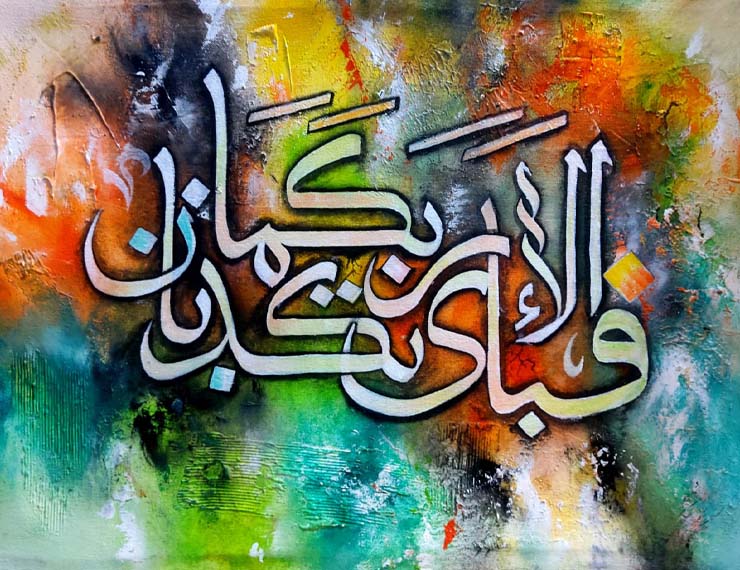 فبأى آلاء ربكما تكذبان